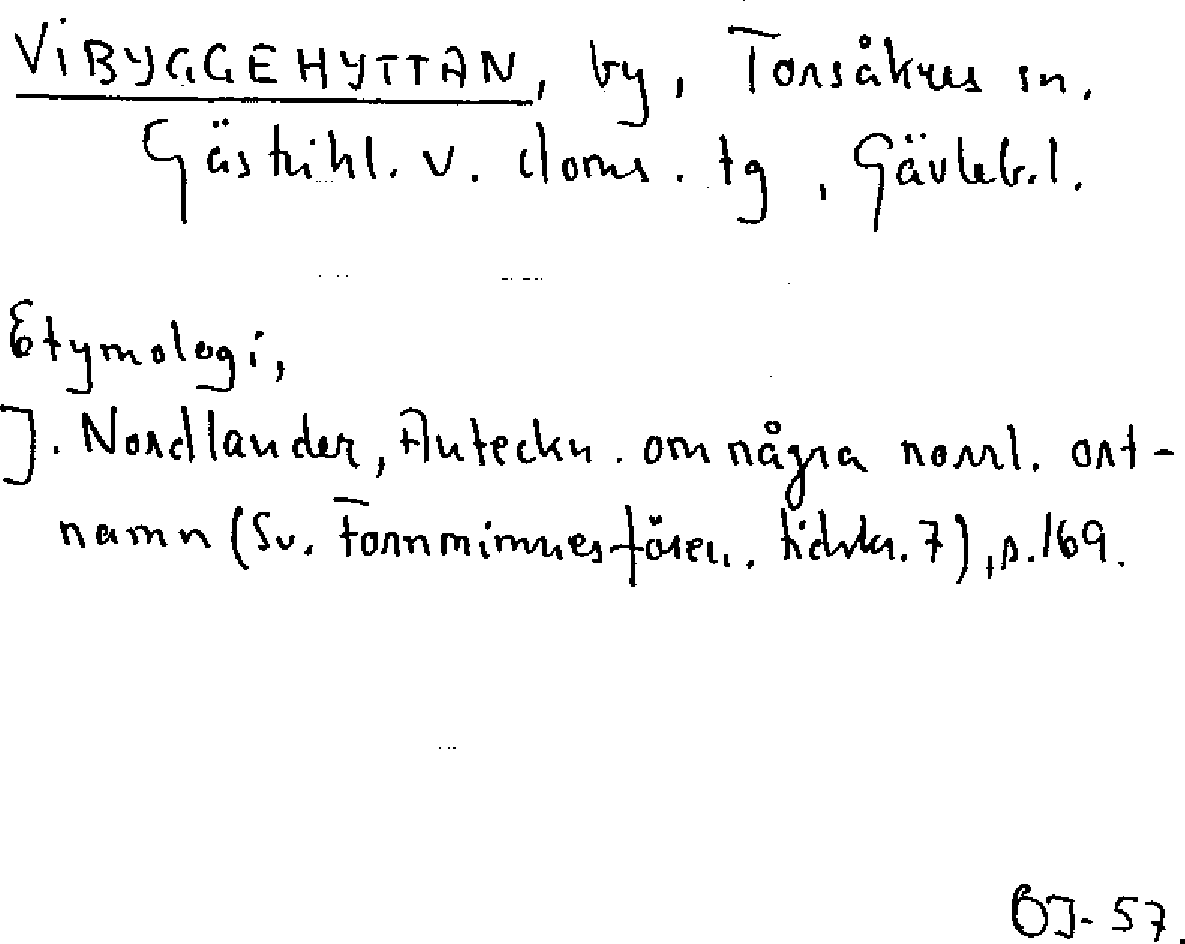 VIBYGGEHYTTAN, by, Torsåkers sn,
Gästrikl. v. doms. tg, Gävleb. l.
Etymologi,
J. Nordlander, Anteckn. om några norrl. ort-
namn (Sv. Fornminnesfören. tidskr. 7), s. 169.
BJ-57.